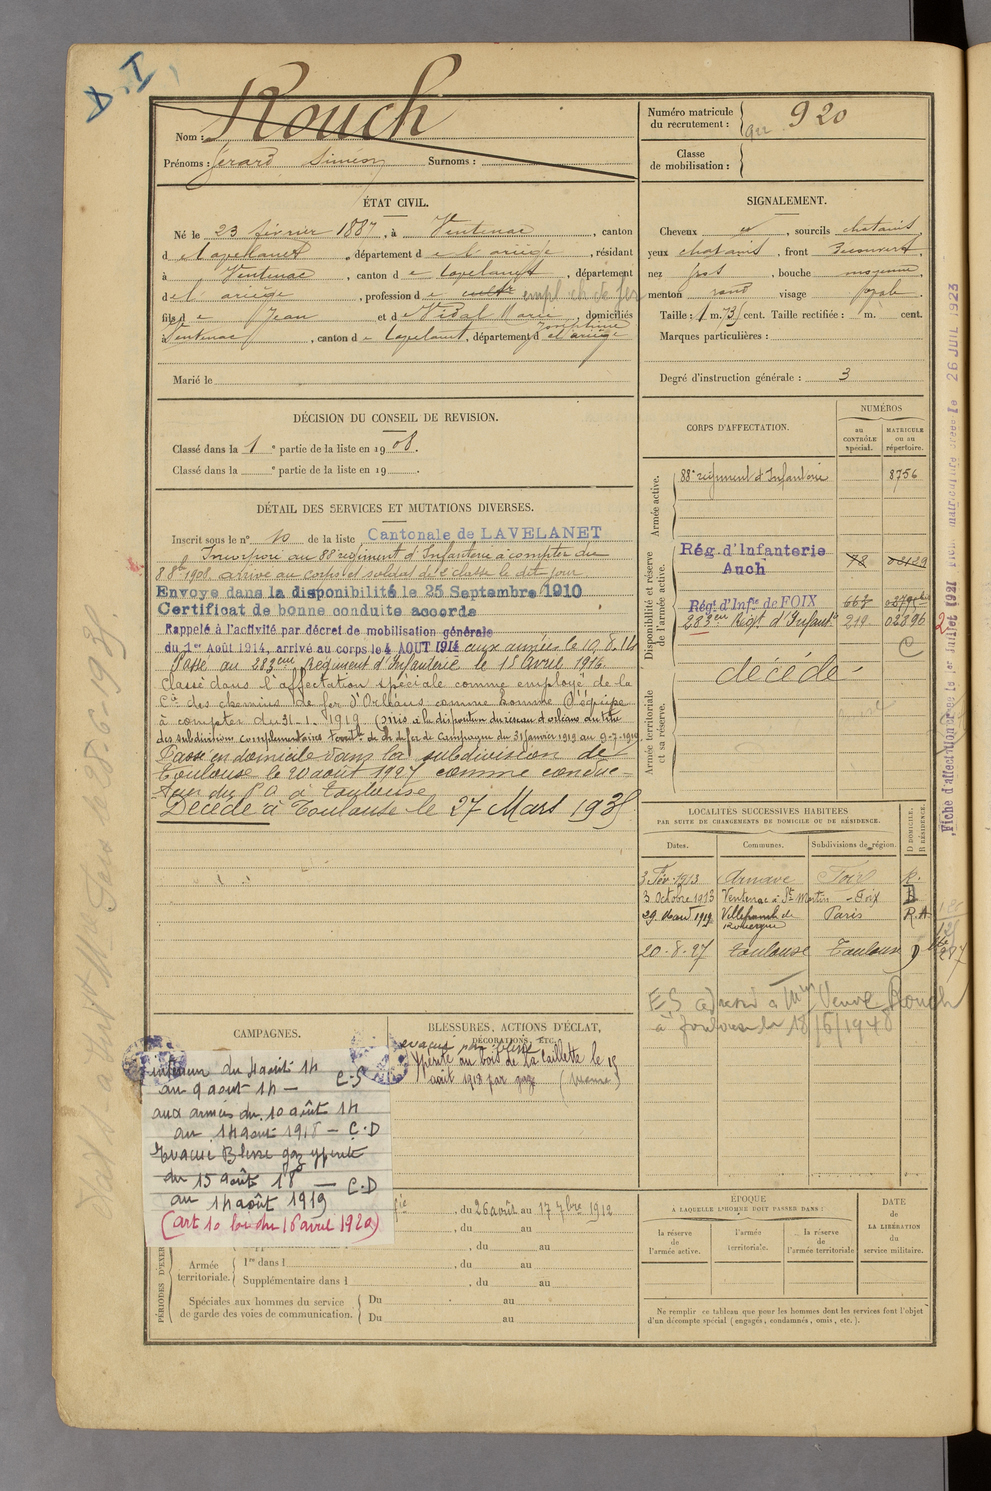 D. I
Nom : Rouch
Prénoms : Gérard Siméon Surnoms :
Numéro matricule du recrutement : 920
Classe de mobilisation :
ÉTAT CIVIL.
Né le 23 février 1887, à Ventenac, canton
d e Lavelanet, département d e l'ariège, résidant
à Ventenac, canton d e Lavelanet, département
d e l'ariège, profession d e cultr empl ch de fer
fils d e Jean et d e Vidal Marie Joséphine, domiciliés
à Ventenac, canton d e Lavelanet, département d e l'ariège
Marié le
SIGNALEMENT.
Cheveux et, sourcils chatains,
yeux chatains, front découvert,
nez gros, bouche moyenne
menton rond visage ovale.
Taille : 1 m. 73 cent. Taille rectifiée : m. cent.
Marques particulières :
Degré d'instruction générale : 3
DÉCISION DU CONSEIL DE REVISION.
Classé dans la 1 e partie de la liste en 1908.
Classé dans la e partie de la liste en 19 .
CORPS D'AFFECTATION.
NUMÉROS
au CONTRÔLE spécial.
MATRICULE ou au répertoire.
Armée active.
88e régiment d'Infanterie 8756
Disponibilité et réserve de l'armée active.
Rég. d'Infanterie
Auch
Rég. d'Infie de FOIX
283eme Régt d'Infantie 219 02896
C
Armée territoriale et sa réserve.
décédé
DÉTAIL DES SERVICES ET MUTATIONS DIVERSES.
Inscrit sous le n° 10 de la liste Cantonale de LAVELANET
Incorporé au 88e régiment d'Infanterie à compter du
8 8bre 1908. arrivé au corps et soldat de 2e classe le dit jour
Envoyé dans la disponibilité le 25 Septembre 1910
Certificat de bonne conduite accordé
Rappelé à l'activité par décret de mobilisation générale
du 1er Août 1914, arrivé au corps le 4 AOUT 1914 aux armées le 10.8.14
Passé au 283eme Régiment d'Infanterie le 18 avril 1916.
Classé dans l'affectation spéciale comme employé de la
Cie des chemins de fer d'Orléans comme homme d'équipe
à compter du 31-1-1919. (mis à la disposition du réseau d'orléans au titre
des subdivisions complémentaires territles de ch de fer de campagne du 31 janvier 1919 au 9-7-1919.
Passé en domicile dans la subdivision de
Toulouse le 20 août 1927 comme conduc-
teur du P.O à Toulouse
Décédé à Toulouse le 27 Mars 193
LOCALITÉS SUCCESSIVES HABITÉES
PAR SUITE DE CHANGEMENTS DE DOMICILE OU DE RÉSIDENCE.
Dates. Communes. Subdivisions de région. D DOMICILE. R RÉSIDENCE.
3 Fév. 1913 Arnave Foix R.
3 Octobre 1913 Ventenac à St Martin - Foix D
29 1919 Villefranche de Rouergue Paris R.A
20-8-27 Toulouse Toulouse D
ES adressé à Mme Veuve Rouch
à Toulouse le 18/5/1948
CAMPAGNES.
intérieur du 4 août 14
au 9 août 14 — C-S
aux armées du 10 août 14
au 14 août 1918 — C.D
Evacué Blessé gaz ypérite
du 15 août 18
au 14 août 1919 — C.D
(art 10 loi du 16 avril 1920)
BLESSURES, ACTIONS D'ÉCLAT,
DÉCORATIONS, ETC.
évacué
Ypérité au bois de La Caillette le 15
août 1918 par gaz
, du 26 août au 17 7bre 1912
, du au
, du au
PÉRIODES D'EXER
Armée territoriale.
1re dans l , du au
Supplémentaire dans l , du au
Spéciales aux hommes du service de garde des voies de communication. Du au
Du au
ÉPOQUE
A LAQUELLE L'HOMME DOIT PASSER DANS :
la réserve de l'armée active.
l'armée territoriale.
la réserve de l'armée territoriale
DATE DE LA LIBÉRATION du service militaire.
Ne remplir ce tableau que pour les hommes dont les services font l'objet
d'un décompte spécial (engagés, condamnés, omis, etc.).